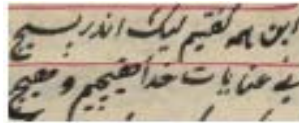 این همه گفتیم لیک اندر بسیج
بی عنایات خدا هیچیم و هیچ